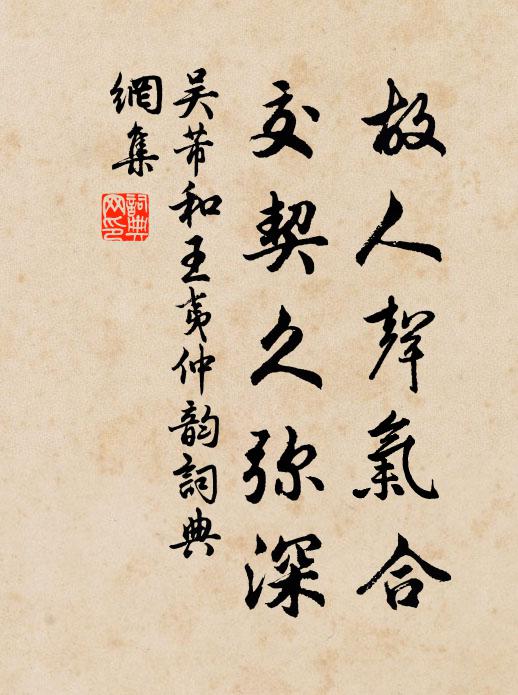 故人聲氣合
交契久弥深
吴芾和王夷仲韵詞典
網集
詞典
网印